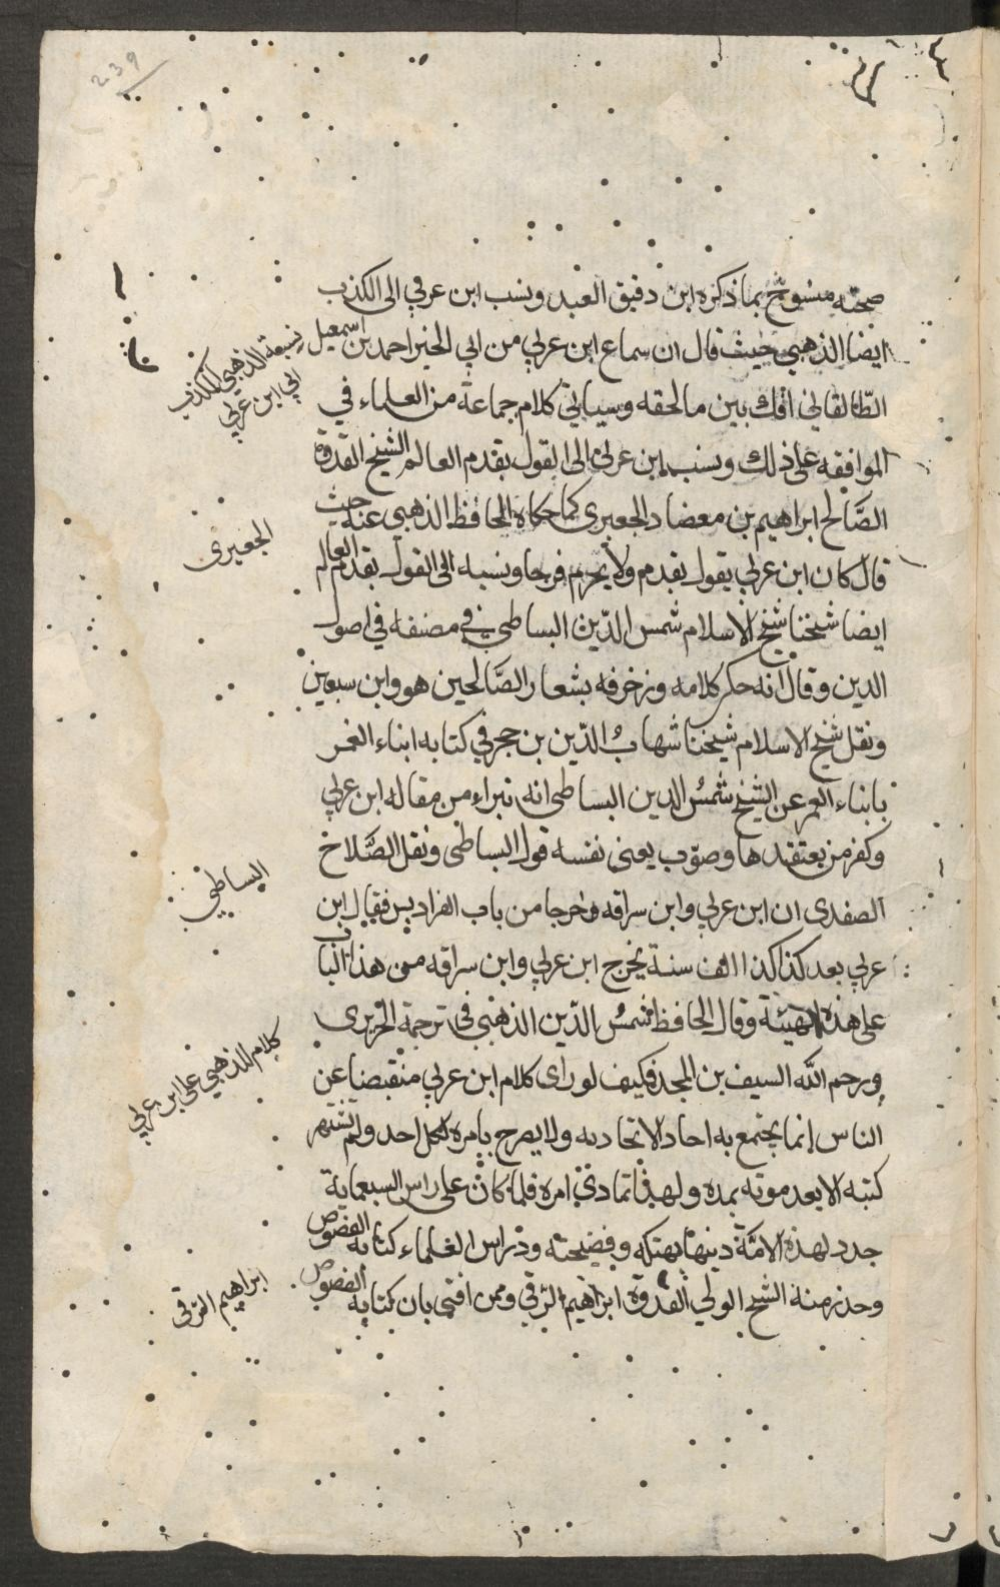 239
صحته مسوخ بما ذكره ابن دقيق العيد ونسب ابن عربي الى الكذب
ايضا الذهبي حيث قال ان سماع ابن عربي من ابي الخير احمد بن اسمعيل
نسبة الذهبي الكذب
الي ابن عربي
الطالقاني افك بين ما لحقه وسياتي كلام جماعة من العلماء في
الموافقه على ذلك ونسب ابن عربي الى القول بقدم العالم الشيخ القدوة
الصَّالح ابراهيم بن معضاد الجعبري كما حكاه الحافظ الذهبي عنه حيث
الجعبرى
قال كان ابن عربي يقول بقدم العالم ولا يحرم فرجا ونسبه الى القول بقدم العالم
ايضا شيخنا شيخ الاسلام شمس الدّين البساطي في مصنفه في اصول
الدين وقال انه حكر كلامه وزخرفه بشعار الصَّالحين هو وابن سبعين
ونقل شيخ الاسلام شيخنا شهابُ الدّين بن حجر في كتابه انباء الغمر
بابناء العمر عن الشيخ شمسُ الدين البساطي انه تبراء من مقاله ابن عربي
وكفر من يعتقدها وصوّب يعنى نفسه قول البساطى ونقل الصَّلاح
البساطي
الصفدى ان ابن عربي وابن سراقه خرجا من باب الفراديس فقال ابن
عربي بعد كذا كذا الف سنة يخرج ابن عربي وابن سراقه من هذا الباب
على هذه الهيئة وقال الحافظ شمسُ الدّين الذهبي في ترجمة الحريرى
كلام الذهبي على ابن عربي
ورحم الله السيف بن المجد فكيف لو راى كلام ابن عربي منقبضا عن
الناس انما يجتمع به احاد الاتحاديه ولا يصرح بامره لكل احد ولم تشتهر
كتبه الا بعد موته بمده ولهذا تمادي امره فلما كان على راس السبعماية
جدد لهذه الامّة دينها بهتكه وفضيحته ودراس العلماء كتابه الفصوص
وحذر منه الشيخ الولي القدوة ابراهيم الرقي وممن افتى بان كتابه الفصوص
ابراهيم الرقي